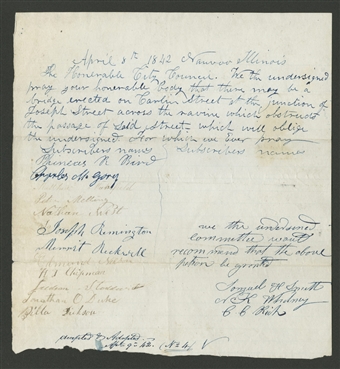 April 8th 1842 Nauvoo Illinois
The Honorable City Council. We the undersigned
pray your honorable body that there may be a
bridge erected on Carlin Street at the junction of
Joseph Street across the ravine which obstructs
the passage of Said Street, which will oblige
the undersigned for which we ever pray
Subscribers names Subscribers names
Phineas R Bird
Charles
Nathan
Joseph Remington
Merrit Rockwell
N Chipman
Jonathan C
we the undersigned
committee want
recommend that the above
petition be granted
Samuel H Smith
N K Whitney
C C Rich
accepted & Adopted
Apl 9th 42. (No 4)